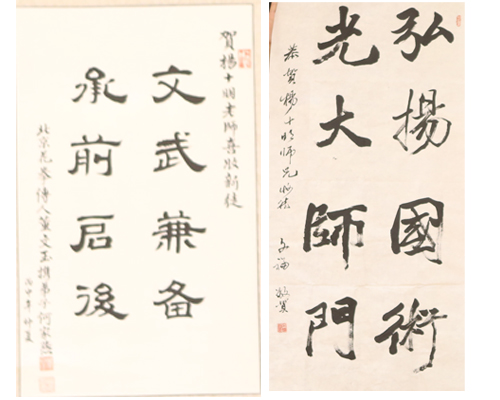 賀楊十老师喜收新徒
文武兼备
承前启後
北京傳人董文玉携弟子何家
丙申年仲夏
弘揚國術
光大師門
恭賀楊十師兄收徒
敬賀